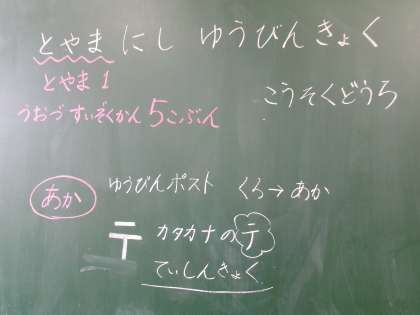 とやまにし ゆうびんきょく
とやま1
うおづ すいぞくかん 5こぶん
こうそくどうろ
あか
ゆうびんポスト くろ→あか
〒 カタカナのテ
ていしんきょく